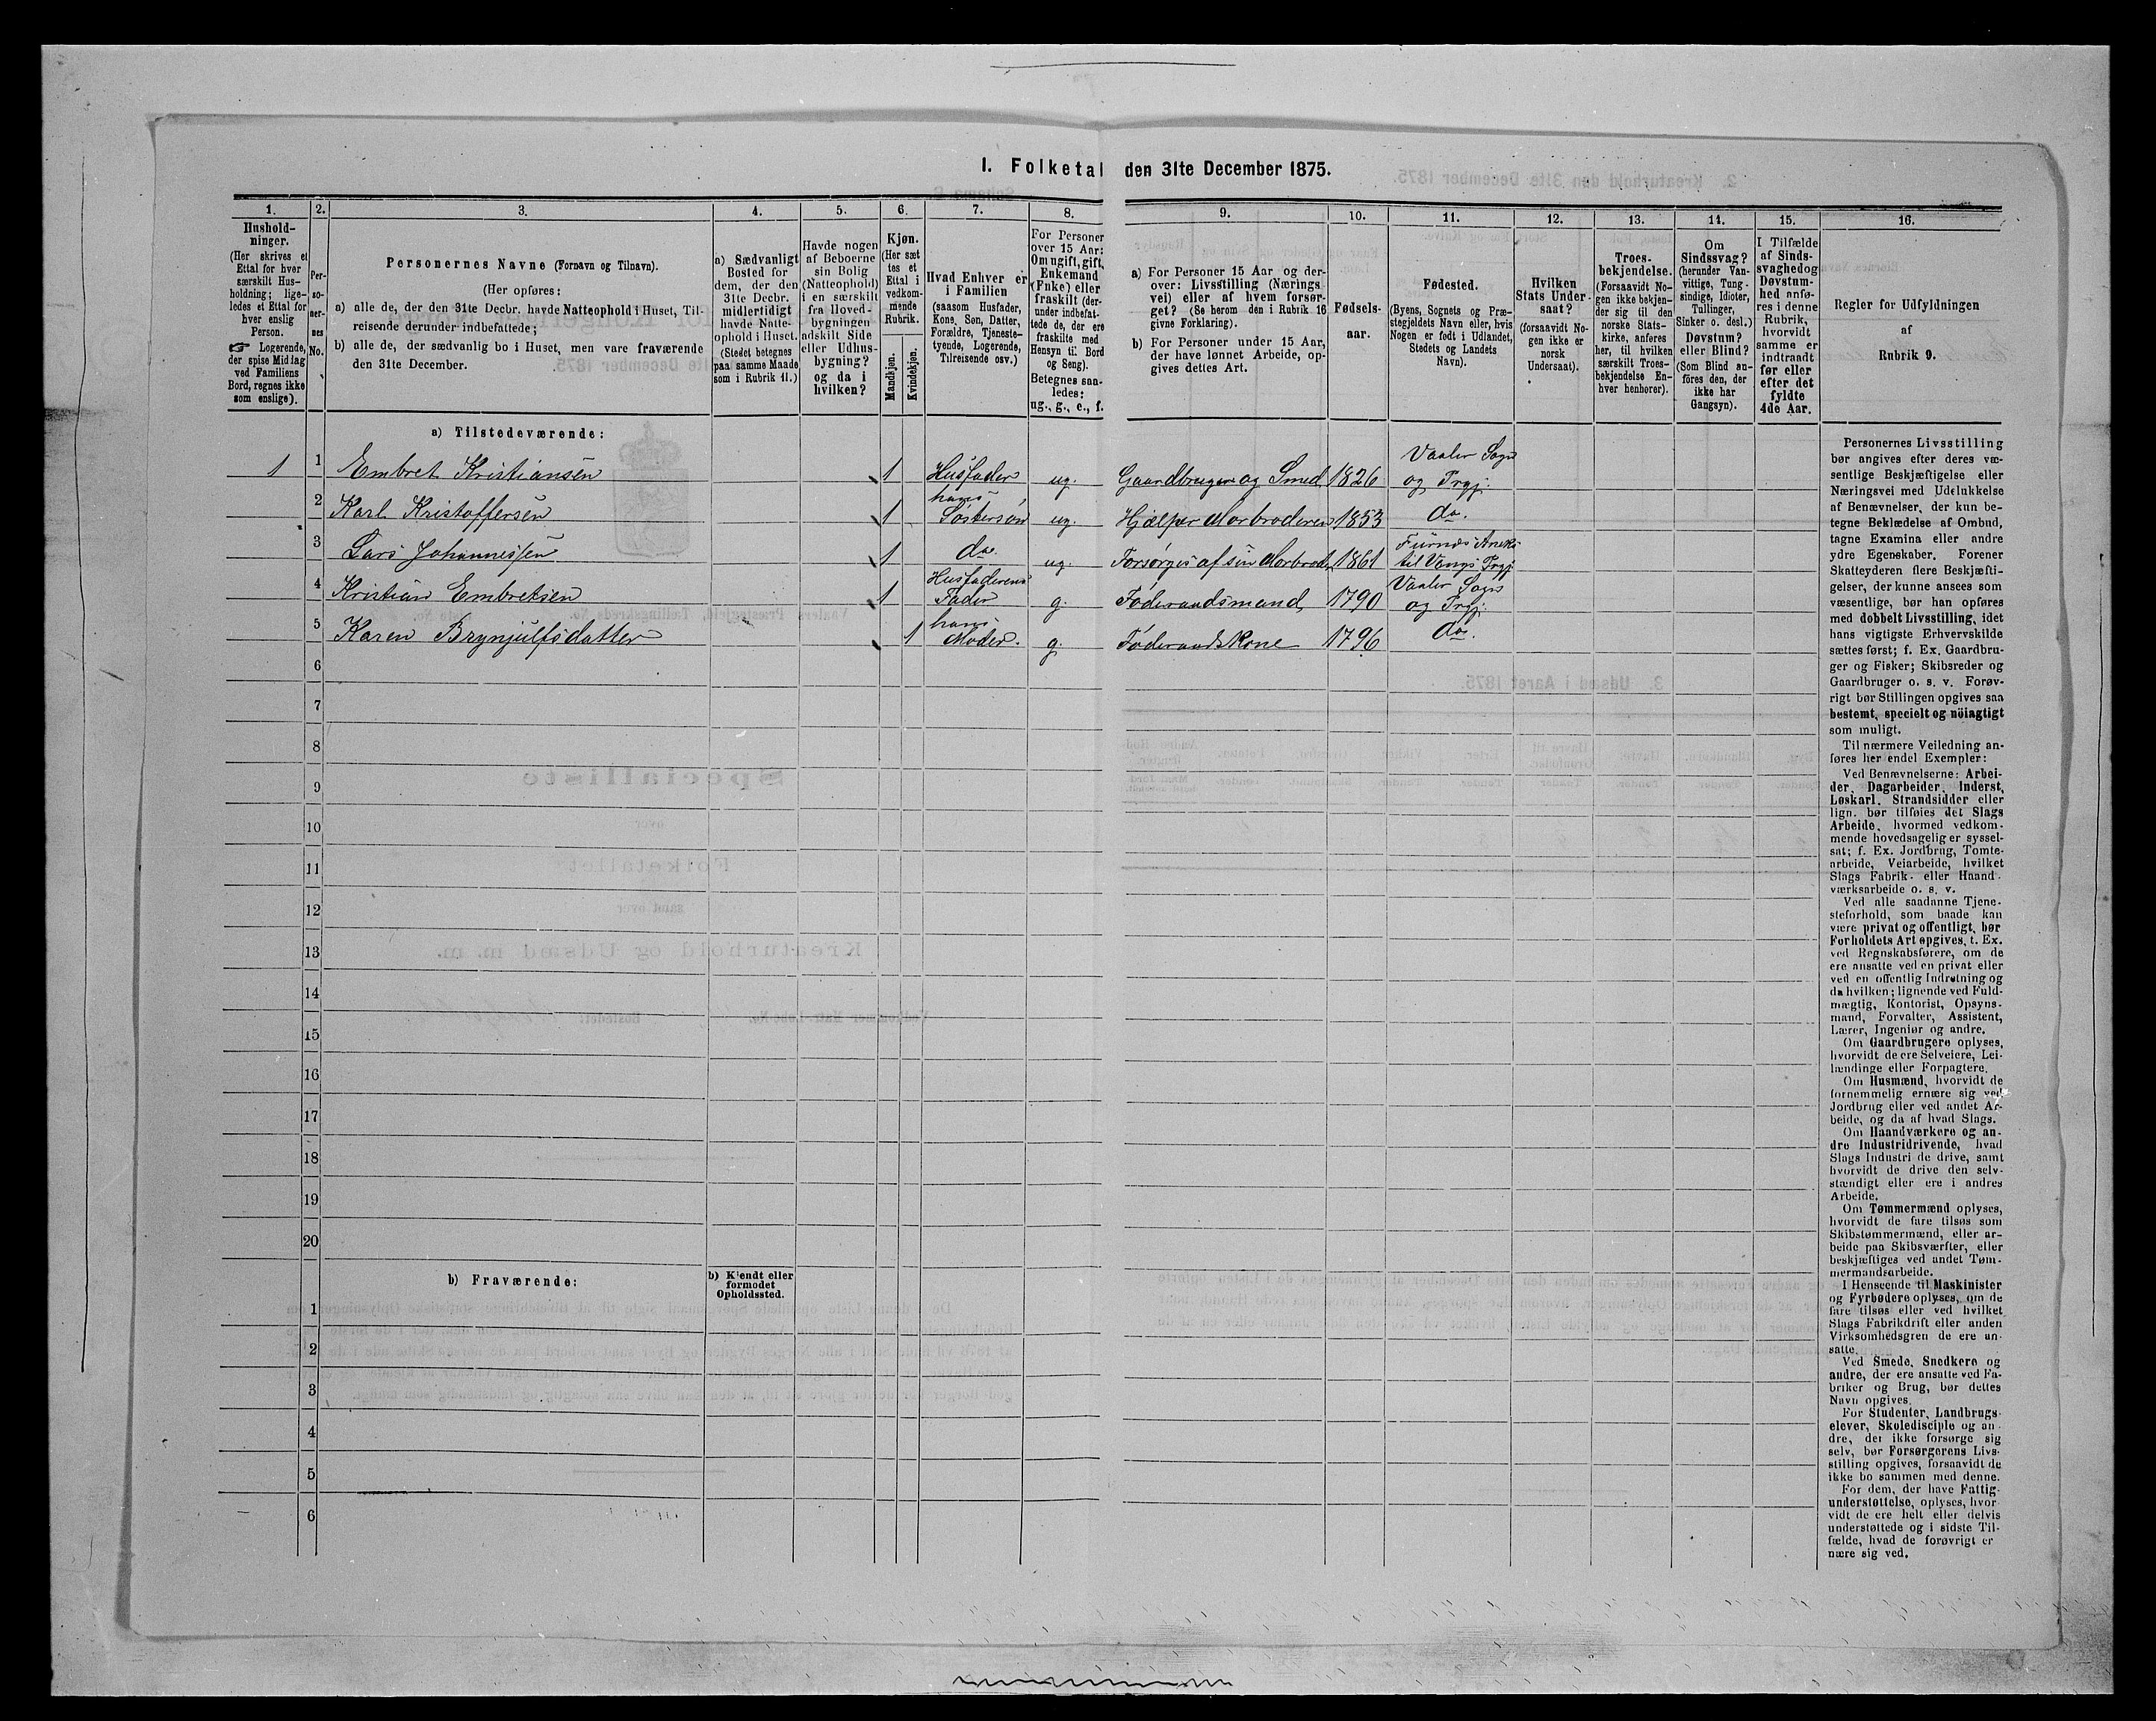 I. Folketal den 31te December 1875.
1. 2. 3. 4. 5. 6. 7. 8. 9. 10. 11. 12. 13. 14. 15. 16.
Hushold-
ninger.
(Her skrives et
Ettal for hver
særskilt Hus-
holdning; lige-
ledes et Ettal for
hver enslig
Person.
☞ Logerende,
der spise Middag
ved Familiens
Bord, regnes ikke
som enslige).
Per-
so-
ner-
nes
No.
Personernes Navne (Fornavn og Tilnavn).
(Her opføres:
a) alle de, der den 31te Decbr. havde Natteophold i Huset, Til-
reisende derunder indbefattede;
b) alle de, der sædvanlig bo i Huset, men vare fraværende
den 31te December.
a) Sædvanligt
Bosted for
dem, der den
31te Decbr.
midlertidigt
havde Natte-
ophold i Huset.
(Stedet betegnes
paa samme Maade
som i Rubrik 11.)
Havde nogen
af Beboerne
sin Bolig
(Natteophold)
i en særskilt
fra Hoved-
bygningen
adskilt Side
eller Udhus-
bygning?
og da i
hvilken?
Kjøn.
(Her sæt
tes et
Ettal i
vedkom-
mende
Rubrik.
Mandkjøn.
Kvindekjøn.
Hvad Enhver er
i Familien
(saasom Husfader,
Kone, Søn, Datter,
Forældre, Tjeneste-
tyende, Logerende,
Tilreisende osv.)
For Personer
over 15 Aar:
Om ugift, gift,
Enkemand
(Enke) eller
fraskilt (der-
under indbefat-
tede de, der ere
fraskilte med
Hensyn til Bord
og Seng).
Betegnes saa-
ledes:
ug., g., e., f.
a) For Personer 15 Aar og der-
over: Livsstilling (Nærings
vei) eller af hvem forsør-
get? (Se herom den i Rubrik 16
givne Forklaring).
b) For Personer under 15 Aar,
der have lønnet Arbeide, op-
gives dettes Art.
Fødsels-
aar.
Fødested.
(Byens, Sognets og Præ-
stegjeldets Navn eller, hvis
Nogen er født i Udlandet,
Stedets og Landets
Navn).
Hvilken
Stats Under-
saat?
(forsaavidt No-
gen ikke er
norsk
Undersaat).
Troes-
bekjendelse.
(Forsaavidt No-
gen ikke bekjen-
der sig til den
norske Stats-
kirke, anføres
her, til hvilken
særskilt Troes-
bekjendelse En-
hver henhører).
Om
Sindssvag?
(herunder Van-
vittige, Tung-
sindige, Idioter,
Tullinger,
Sinker o. desl.)
Døvstum?
eller Blind?
(Som Blind an-
føres den, der
ikke har
Gangsyn).
I Tilfælde
af Sinds-
svaghedog
Døvstum-
hed anfø-
res i denne
Rubrik,
hvorvidt
samme er
indtraadt
før eller
efter det
fyldte
4de Aar.
Regler for Udfyldningen
af
Rubrik 9.
a) Tilstedeværende:
1 1 Embret Kristiansen 1 Husfader ug. Gaardbruger og Smed 1826 Vaaler Sogn og Prgj.
2 Karl Kristoffersen 1 hans Søstersøn ug. Hjælper Morbroderen 1853 do.
3 Lars Johannessen 1 do. ug. Forsørges af sin Morbroder 1861 Furnæs Aneks til Vangs Prgj.
4 Kristian Embretsen 1 Husfaderens Fader g. Føderaadsmand 1790 Vaaler Sogn og Prgj.
5 Karen Brynjulfsdatter 1 hans Moder. g. Føderaadskone 1796 do.
6
7
8
9
10
11
12
13
14
15
16
17
18
19
20
b) Fraværende:
b) Kjendt eller
formodet
Opholdssted.
1
2
3
4
5
6
Personernes Livsstilling
bør angives efter deres væ-
sentlige Beskjæftigelse eller
Næringsvei med Udelukkelse
af Benævnelser, der kun be-
tegne Beklædelse af Ombud,
tagne Examina eller andre
ydre Egenskaber. Forener
Skatteyderen flere Beskjæfti-
gelser, der kunne ansees som
væsentlige, bør han opføres
med dobbelt Livsstilling, idet
hans vigtigste Erhvervskilde
sættes først; f. Ex. Gaardbru-
ger og Fisker; Skibsreder og
Gaardbruger o. s. v. Forøv-
rigt bør Stillingen opgives saa
bestemt, specielt og nöiagtigt
som muligt.
Til nærmere Veiledning an-
føres her endel Exempler:
Ved Benævnelserne: Arbei-
der, Dagarbeider, Inderst,
Løskarl, Strandsidder eller
lign. bør tilføies det Slags
Arbeide, hvormed vedkom-
mende hovedsagelig er syssel-
sat; f. Ex. Jordbrug, Tomte-
arbeide, Veiarbeide, hvilket
Slags Fabrik- eller Haand-
værksarbeide o. s. v.
Ved alle saadanne Tjene-
steforhold, som baade kan
være privat og offentligt, bør
Forholdets Art opgives, t. Ex.
ved Regnskabsførere, om de
ere ansatte ved en privat eller
ved en offentlig Indretning og
da hvilken; lignende ved Fuld-
mægtig, Kontorist, Opsyns-
mand, Forvalter, Assistent,
Lærer, Ingeniør og andre.
Om Gaardbrugere oplyses,
hvorvidt de ere Selveiere, Lei-
lændinge eller Forpagtere.
Om Husmænd, hvorvidt de
fornemmelig ernære sig ved
Jordbrug eller ved andet Ar-
beide, og da af hvad Slags.
Om Haandværkere og an-
dre Industridrivende, hvad
Slags Industri de drive, samt
hvorvidt de drive den selv-
stændigt eller ere i andres
Arbeide.
Om Tømmermænd oplyses,
hvorvidt de fare tilsøs som
Skibstømmermænd, eller ar-
beide paa Skibsværfter, eller
beskjæftiges ved andet Tøm-
mermandsarbeide.
I Henseende til Maskinister
og Fyrbødere oplyses, om de
fare tilsøs eller ved hvilket
Slags Fabrikdrift eller anden
Virksomhedsgren de ere an-
satte.
Ved Smede, Snedkere og
andre, der ere ansatte ved Fa-
briker og Brug, bør dettes
Navn opgives.
For Studenter, Landbrugs-
elever, Skoledisciple og an-
dre, der ikke forsørge sig
selv, bør Forsørgerens Livs-
stilling opgives, forsaavidt de
ikke bo sammen med denne.
For dem, der have Fattig-
understøttelse, oplyses, hvor-
vidt de ere helt eller delvis
understøttede og i sidste Til-
fælde, hvad de forøvrigt er
nære sig ved.